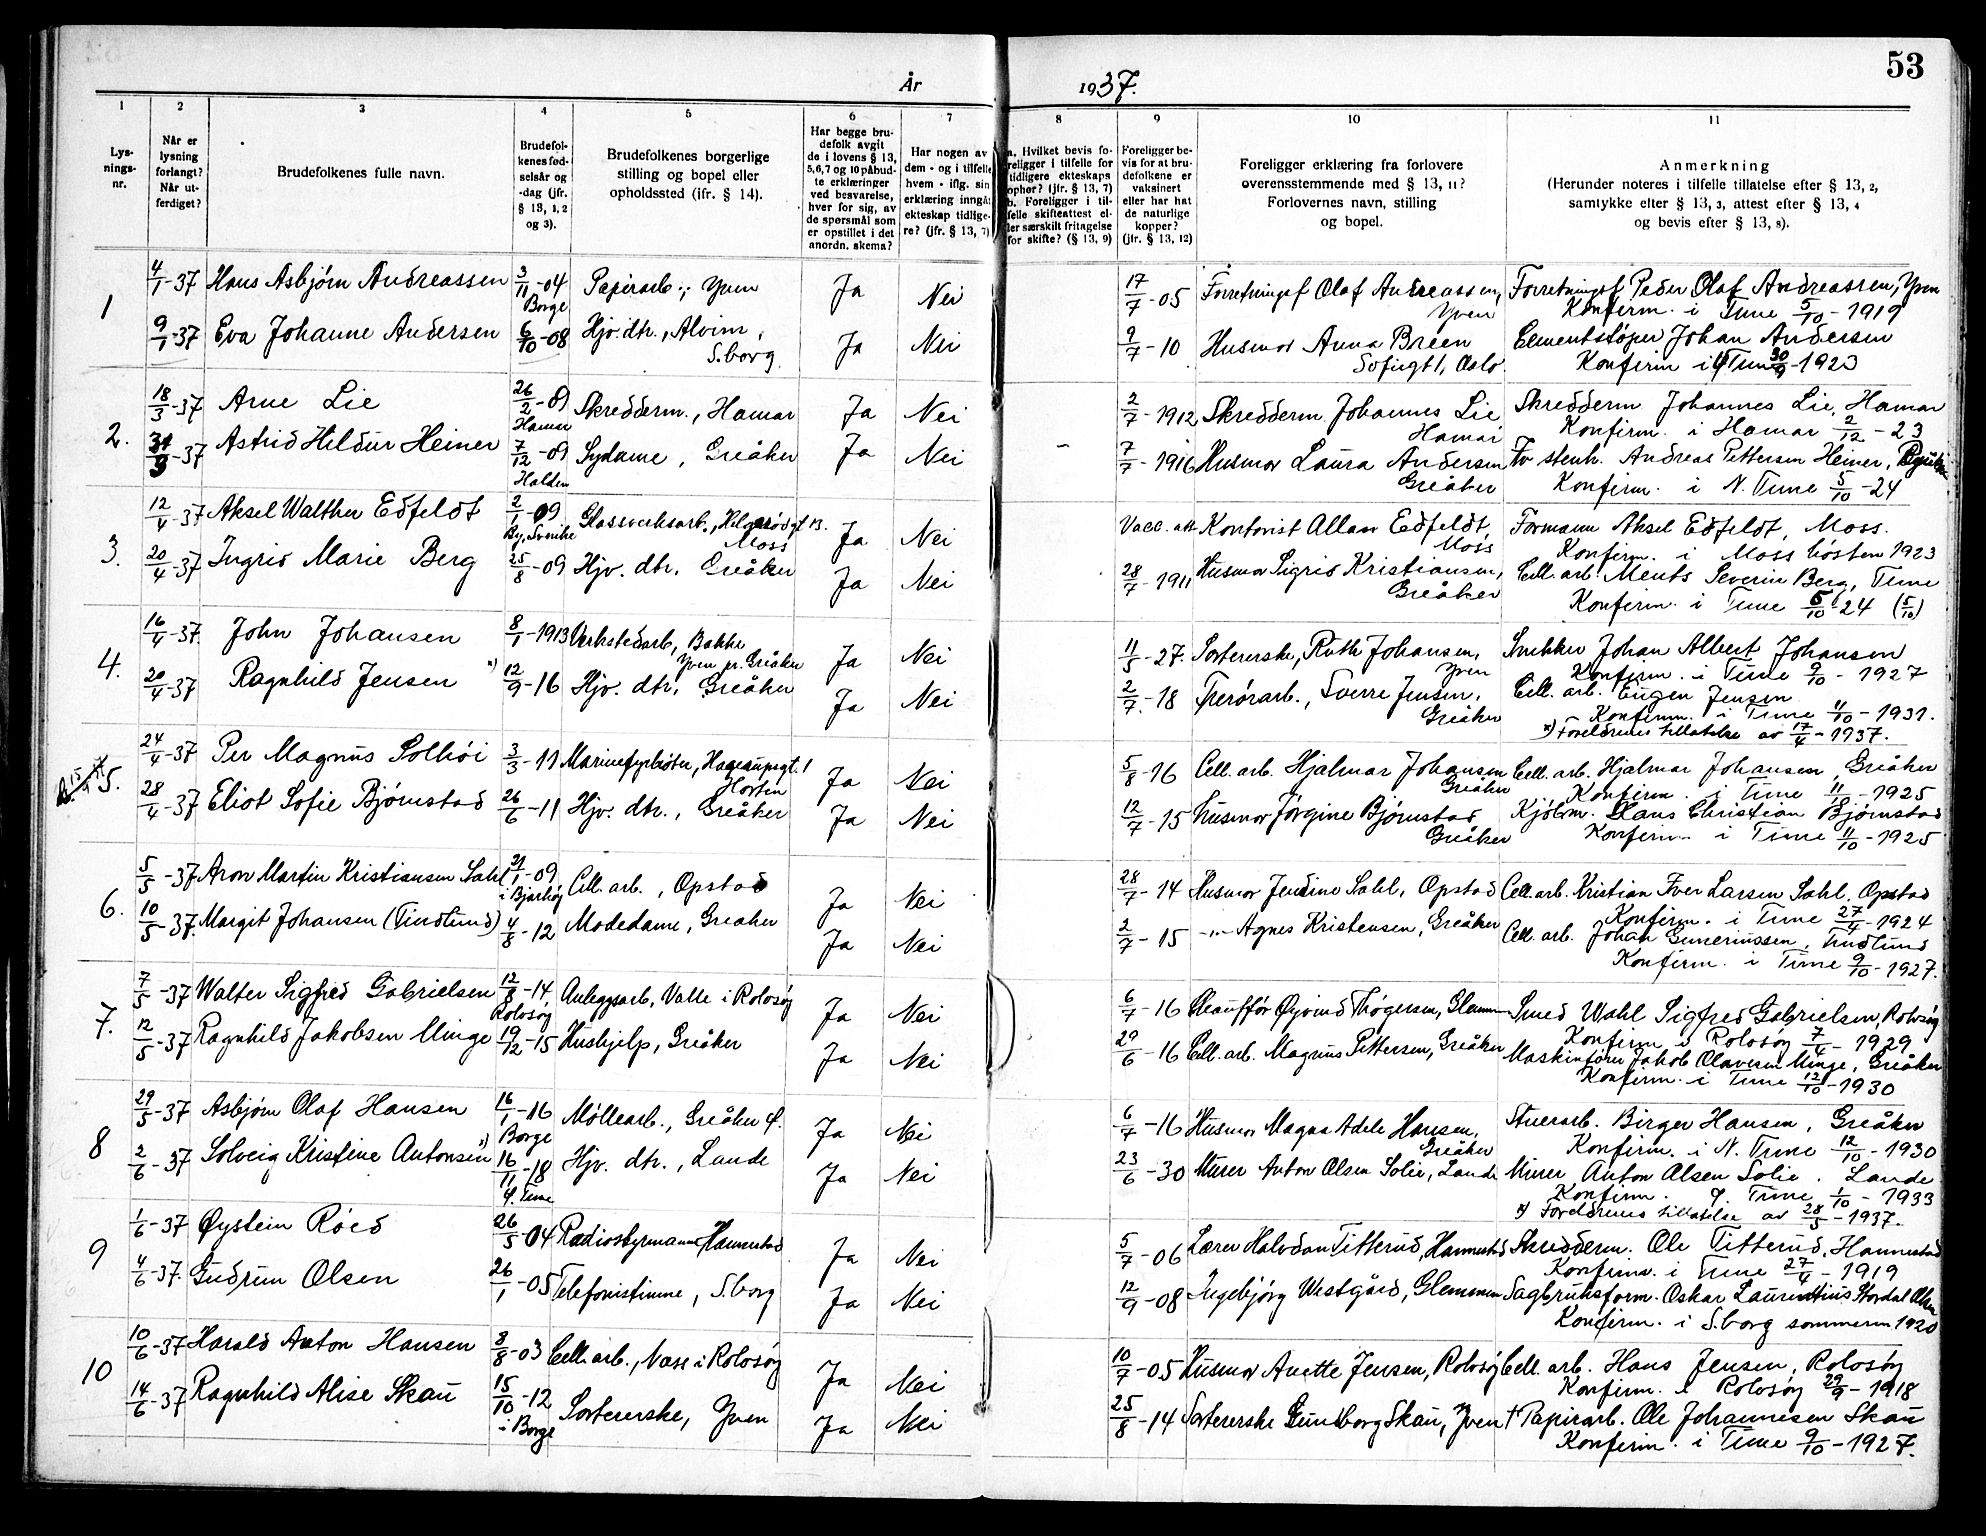 53
År 1937.
1
2
3
4
5
6
7
8
9
10
11
Lys-
nings-
nr.
Når er
lysning
forlangt?
Når ut-
ferdiget?
Brudefolkenes fulle navn.
Brudefol-
kenes fød-
selsår og
-dag (jfr.
§ 13, 1, 2
og 3).
Brudefolkenes borgerlige
stilling og bopel eller
opholdssted (jfr. § 14).
Har begge bru-
defolk avgit
de i lovens § 13,
5,6,7 og 10 påbud-
te erklæringer
ved besvarelse,
hver for sig, av
de spørsmål som
er opstillet i det
anordn. skema?
Har nogen av
dem - og i tilfelle
hvem - iflg. sin
erklæring inngåt
ekteskap tidlige-
re? (jfr. § 13, 7)
a. Hvilket bevis fo-
religger i tilfelle for
tidligere ekteskaps
ophør? (jfr. § 13, 7)
b. Foreligger i til-
felle skifteattest el-
ler særskilt fritagelse
for skifte? (§ 13, 9)
Foreligger be-
vis for at bru-
defolkene er
vaksinert
eller har hat
de naturlige
kopper?
(jfr. § 13, 12)
Foreligger erklæring fra forlovere
overensstemmende med § 13, 11?
Forlovernes navn, stilling
og bopel.
Anmerkning
(Herunder noteres i tilfelle tillatelse efter § 13, 2,
samtykke efter § 13, 3, attest efter § 13, 4
og bevis efter § 13, 8).
1
4/1-37 Hans Asbjørn Andreassen 3/11-04 Borge Papirarb., Yven Ja Nei 17/7-05 Forretningsf Olaf Andreassen, Yven Forretningsf Peder Olaf Andreassen, Yven
Konfirm. i Tune 5/10-1919
9/1-37 Eva Johanne Andersen 6/10-08 Hjv. dtr., Alvim, S.borg Ja Nei 9/7-10 Husmor Anna Breen Sofiegt 1, Oslo. Cementstøper Johan Andersen
Konfirm i Tune 30/9-1923
2.
18/3-37 Arne Lie 26/2-09 Hamar Skredderm., Hamar Ja Nei 2/7-1912 Skredderm. Johannes Lie Hamar Skredderm Johannes Lie, Hamar
Konfirm. i Hamar 2/12-23
31/3-37 Astrid Hildur Heiner 7/12-09 Halden Sydame, Greåker Ja Nei - 7/7-1916 Husmor Laura Andersen Greåker Fv stenh. Andreas Pettersen Heiner,
Konfirm. i N. Tune 5/10-24
3.
12/4-37 Aksel Walther Edfeldt 2/-09 Glassverksarb., Moss Ja Nei Vacc. att Kontorist Allan Edfeldt, Moss Formann Aksel Edfeldt, Moss.
Konfirm. i Moss høsten 1923
20/4-37 Ingrid Marie Berg 25/8-09 Hjv. dtr. Greåker Ja Nei 28/7-1911 Husmor Sigrid Kristiansen, Greåker Cell. arb. Ments Severin Berg, Tune
Konfirm. i Tune 5/10 24 (5/10)
4.
16/4-37. John Johansen 8/1-1913 Verkstedarb, Bakke Yven pr. Greåker Ja Nei 11/5-27. Sortererske, Ruth Johansen, Yven Snekker Johan Albert Johansen
Konfirm. i Tune 9/10-1927
20/4-37 Ragnhild Jensen x) 12/9-16 Hjv. dtr, Greåker Ja Nei 2/7-18 Trerørarb., Sverre Jensen, Greåker Cell. arb. Eugen Jensen
Konfirm. i Tune 11/10-1931.
x) Foreldrenes tillatelse av 17/4-1937.
5.
24/4-37 Per Magnus Solhøi 3/3-11 Marinefyrbøter, Horten Ja Nei 5/8-16 Cell. arb. Hjalmar Johansen Greåker Cell. arb. Hjalmar Johansen, Greåker
Konfirm. i Tune 11/10-1925
28/4-37 Eliot Sofie Bjørnstad 26/6-11 Hjv. dtr., Greåker Ja Nei 12/7-15 Husmor Jørgine Bjørnstad Greåker Kjøbm. Hans Christian Bjørnstad
Konfirm. i Tune 11/10-1925
6.
5/5-37 Aron Martin Kristiansen Sahl 21/1-09 Cell. arb., Opstad Ja Nei 28/7-14 Husmor Jendine Sahl, Opstad Cell. arb. Kristian Iver Larsen Sahl, Opstad
Konfirm. i Tune 27/4-1924
10/5-37. Margit Johansen (Tindlund) 4/8-12 Modedame, Greåker Ja Nei 2/7-15 -"- Agnes Kristensen, Greåker Cell. arb. Johan Guneriussen, Tindlund
Konfirm. i Tune 9/10-1927.
7.
7/5-37 Walter Sigfred Gabrielsen 12/8-14, Rolvsøy Anleggsarb, Valle i Rolvsøy Ja Nei 6/7-16 Chauffør Øyvind Thøgersen, Glemmen Smed Wahl Sigfred Gabrielsen, Rolvsøy
Konfirm. i Rolvsøy 7/4-1929
12/5-37 Ragnhild Jakobsen Minge 19/12-15 Hushjelp, Greåker Ja Nei 29/6-16 Cell. arb. Magnus Pettersen, Greåker Maskinfører Jakob Olavesen Minge, Greåker
Konfirm. i Tune 12/10-1930
8
29/5-37 Asbjørn Olaf Hansen 16/1-16 Borge Møllearb., Greåker Ja Nei 6/7-16 Husmor Magna Adele Hansen, Greåker Stuerarb. Birger Hansen, Greåker
Konfirm. i N. Tune 12/10-1930
2/6-37 Solveig Kristine Antonsen x) 16/11-18 Tune Hjv. dtr., Lande Ja Nei 23/6-30 Murer Anton Olsen Solie, Lande Murer Anton Olsen Solie. Lande
Konfirm. Tune 1/10-1933
x) Foreldrenes tillatelse av 28/5-1937.
9
1/6-37 Øystein Röed 26/5-04 Radiostyrmann, Hannestad Ja Nei 5/7-06 Lærer Halvdan Titterud, Hannestad Skredderm. Ole Titterud, Hannestad
Konfirm. i Tune 27/4-1919
4/6-37. Gudrun Olsen 26/1-05 Telefonistinne, S.borg Ja Nei 12/9-08 Ingebjørg Westgård, Glemmen Sagbruksform. Oskar Laurentius Stordal Olsen
Konfirm. i S.borg sommeren 1920
10
10/6-37 Harald Anton Hansen 8/8-03 Cell. arb., Næss i Rolvsøy Ja Nei 10/7-05 Husmor Anette Jensen, Rolvsøy Cell. arb. Hans Jensen, Rolvsøy
Konfirm. i Rolvsøy 29/9-1918
14/6-37 Ragnhild Alise Skau 15/10-12 i Borge Sortererske, Yven Ja Nei 25/8-14 Sortererske Gundborg Skau, Yven † Papirarb. Ole Johannesen Skau
Konfirm. i Tune 9/10-1927.